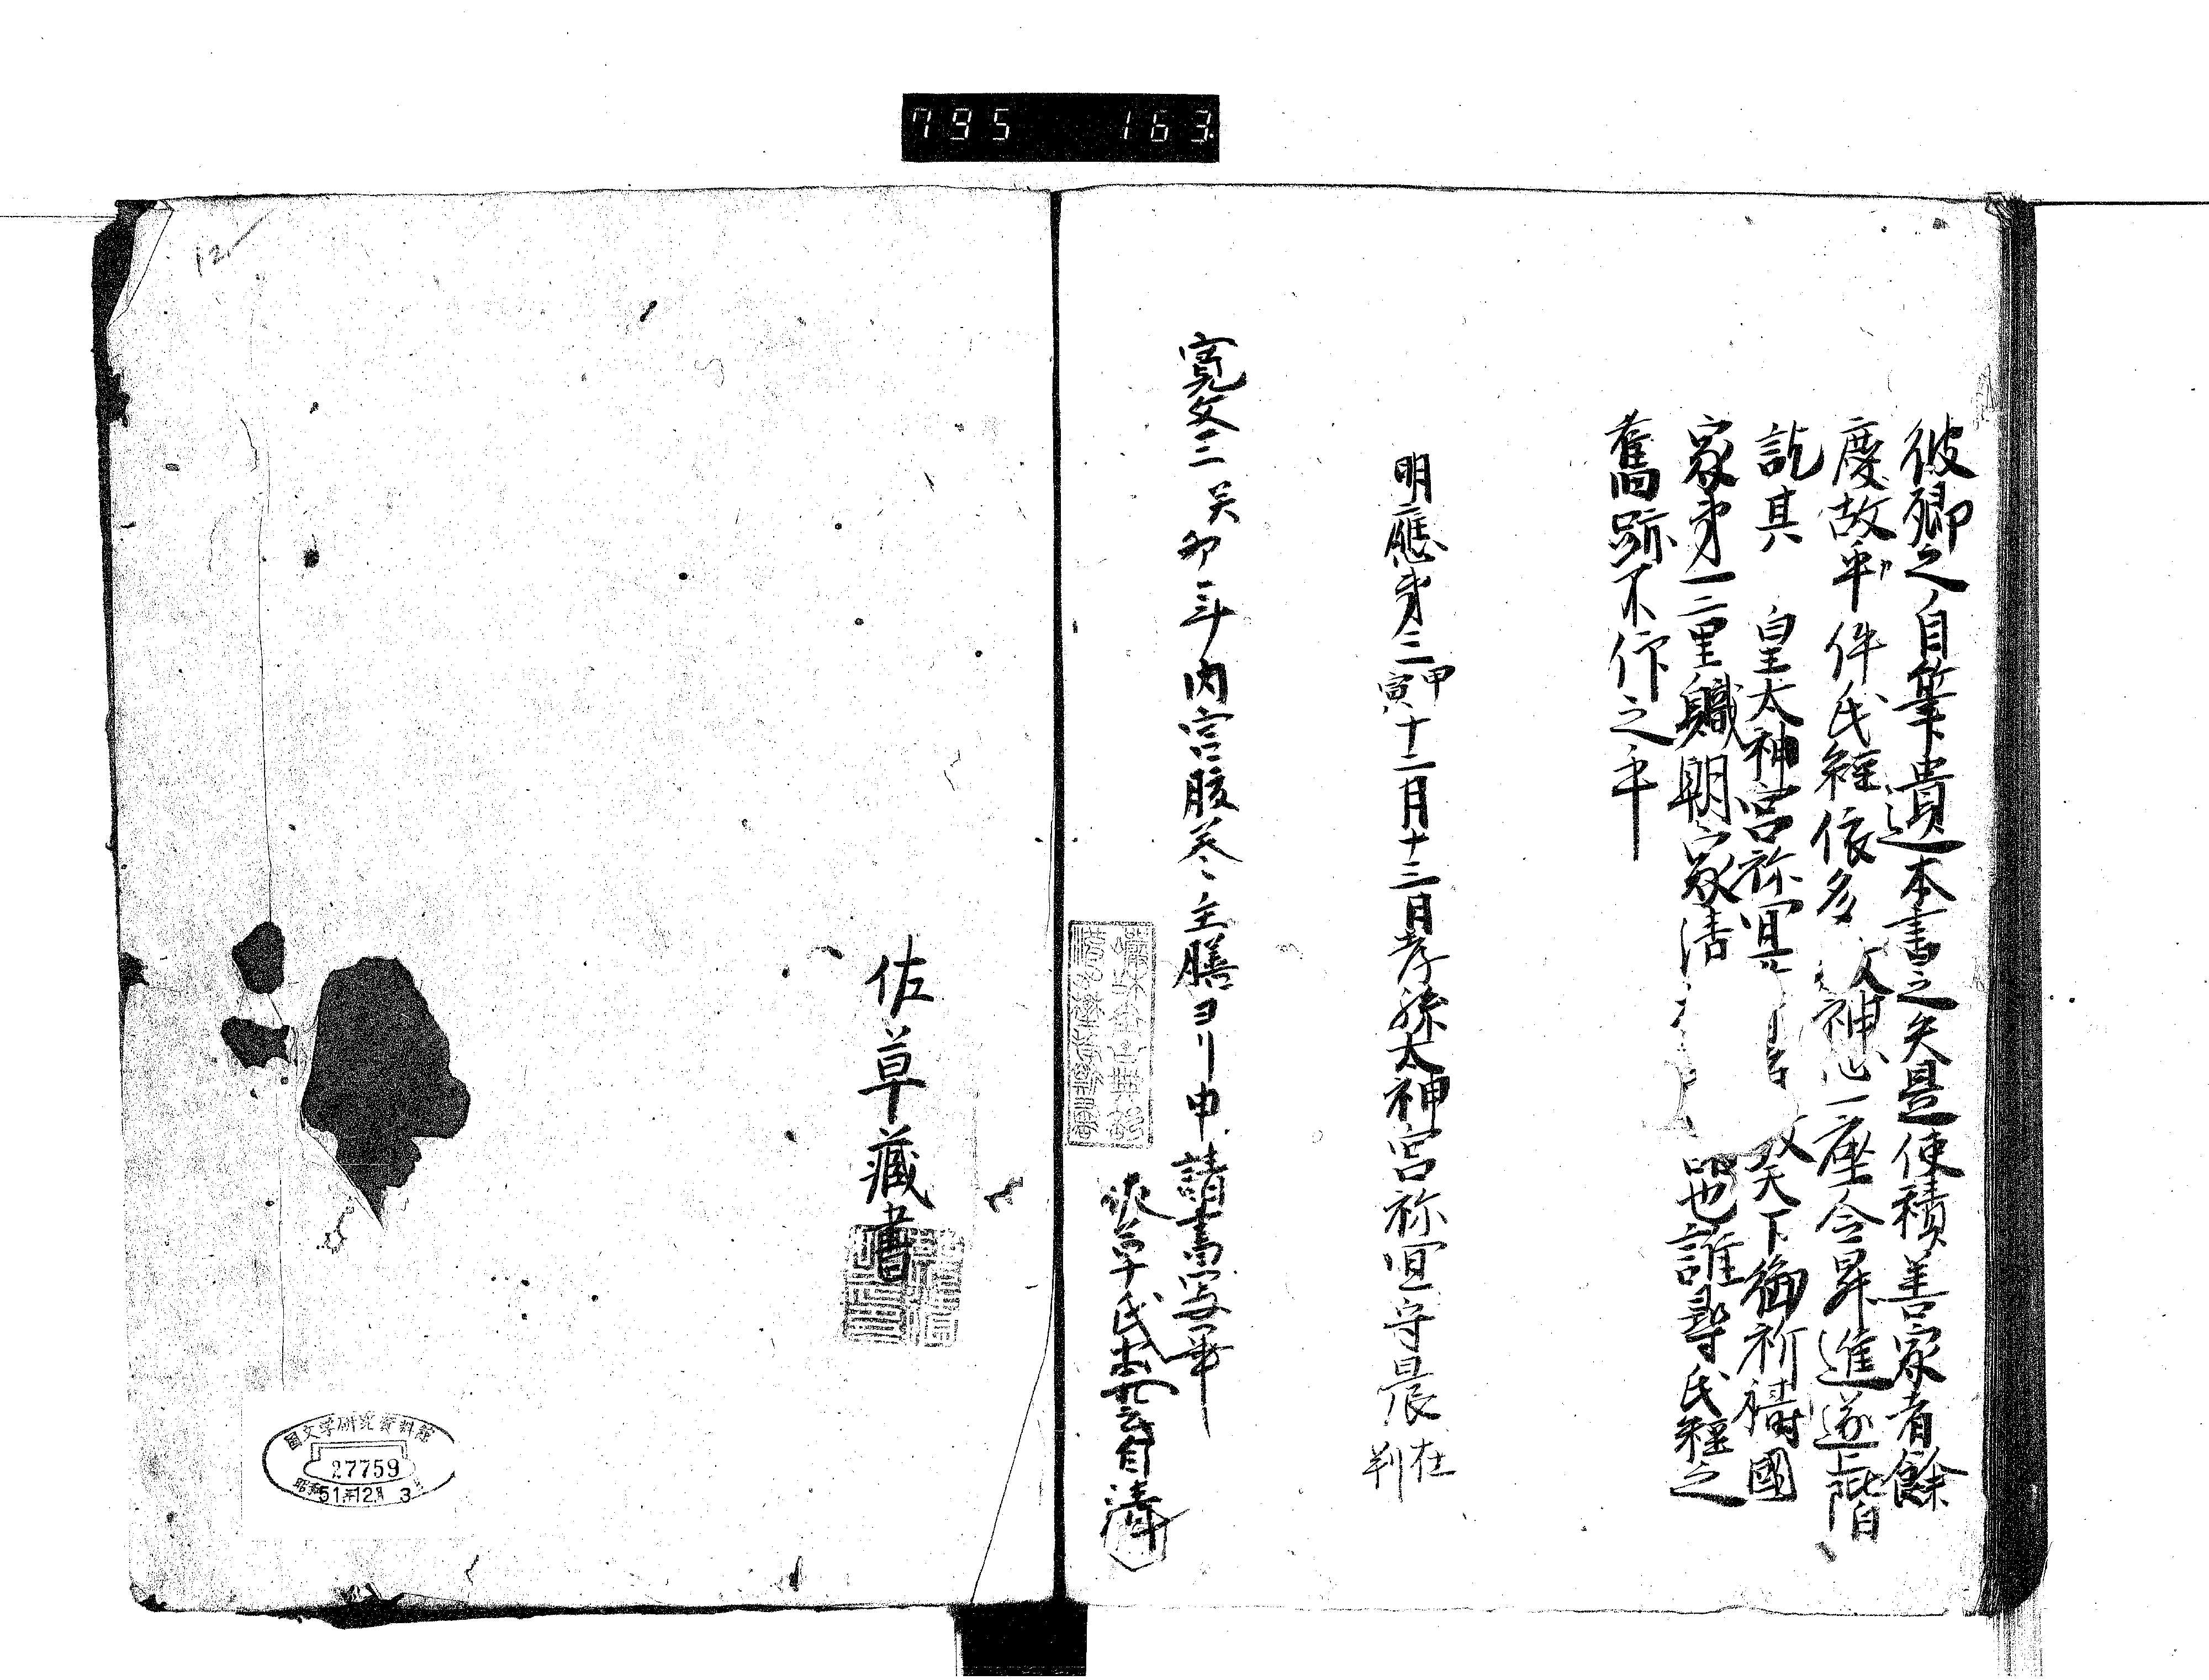 彼卿之自筆遺本書之矣是使積善家者餘
慶故乎件氏經依多 神心一座令昇進遂上階
訖其 皇太神宮祢冝 天下御祈禱國
家第一二里職朝家清 也誰尋氏經之
舊跡不作之乎
明應第三甲寅十二月十三日孝孫太神宮祢冝守晨在判
寛文三癸卯三年内宮 主膳ヨリ申請書写畢
草氏 自清
佐草藏書
795 163
12
國文学研究資料館
27759
昭和51年12月3日